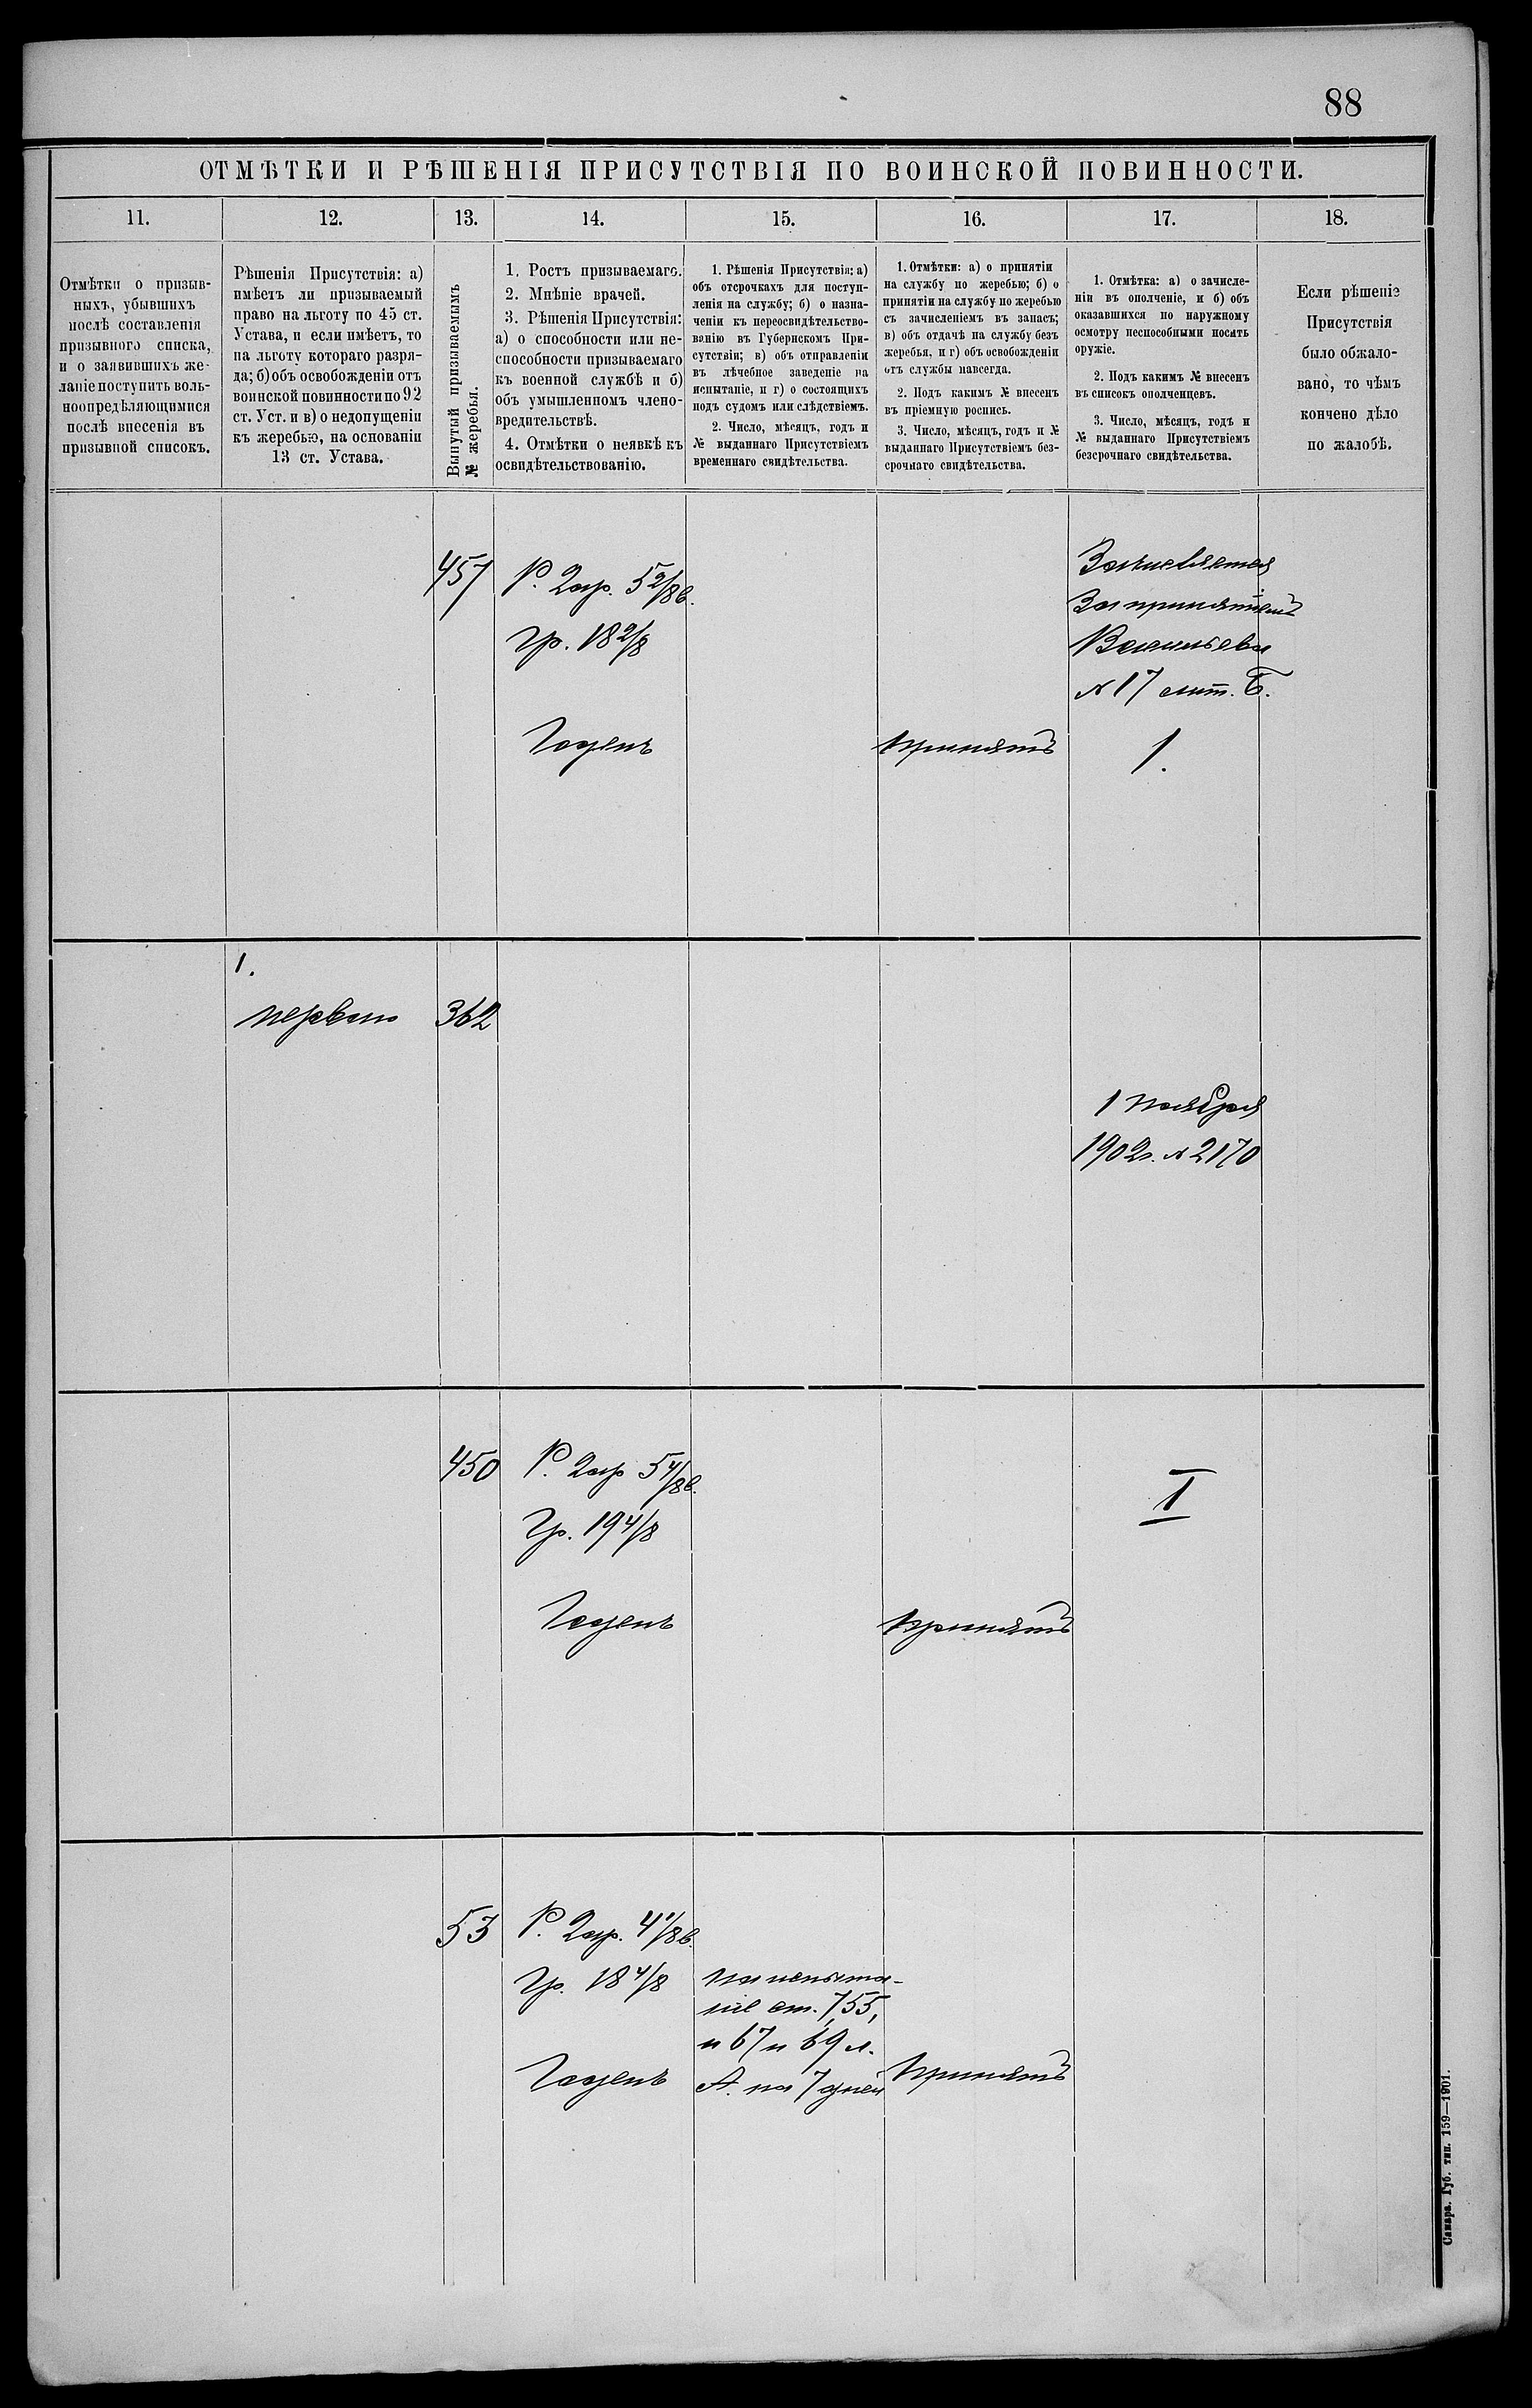 88
ОТМѢТКИ И РѢШЕНІЯ ПРИСУТСТВІЯ ПО ВОИНСКОЙ ПОВИННОСТИ.
11.
12.
13.
14.
15.
16.
17.
18.
Отмѣтки о призыв-
ныхъ, убывшихъ
послѣ составленія
призывного списка,
и о заявившихъ же-
ланіе поступить воль-
ноопредѣляющимися
послѣ внесенія въ
призывной списокъ.
Рѣшенія Присутствія: а)
имѣетъ ли призываемый
право на льготу по 45 ст.
Устава, и если имѣетъ, то
на льготу котораго разря-
да; б) объ освобожденіи отъ
воинской повинности по 92
ст. Уст. и в) о недопущеніи
къ жеребью, на основаніи
13 ст. Устава.
Вынутый призываемымъ
№ жеребья.
1. Ростъ призываемаго.
2. Мнѣніе врачей.
3. Рѣшенія Присутствія:
а) о способности или не-
способности призываемаго
къ военной службѣ и б)
объ умышленномъ члено-
вредительствѣ.
4. Отмѣтки о неявкѣ къ
освидѣтельствованію.
1. Рѣшенія Присутствія: а)
объ отсрочкахъ для поступ-
ленія на службу; б) о назна-
ченіи къ переосвидѣтельство-
ванію въ Губернскомъ При-
сутствіи; в) объ отправленіи
въ лѣчебное заведеніе на
испытаніе, и г) о состоящихъ
подъ судомъ или слѣдствіемъ.
2. Число, мѣсяцъ, годъ и
№ выданнаго Присутствіемъ
временнаго свидѣтельства.
1. Отмѣтки: а) о принятіи
на службу по жеребью; б) о
принятіи на службу по жеребью
съ зачисленіемъ въ запасъ;
в) объ отдачѣ на службу безъ
жеребья, и г) объ освобожденіи
отъ службы навсегда.
2. Подъ какимъ № внесенъ
въ пріемную роспись.
3. Число, мѣсяцъ, годъ и №
выданнаго Присутствіемъ без-
срочнаго свидѣтельства.
1. Отмѣтка: а) о зачисле-
ніи въ ополченіе, и б) объ
оказавшихся по наружному
осмотру неспособными носить
оружіе.
2. Подъ какимъ № внесенъ
въ списокъ ополченцевъ.
3. Число, мѣсяцъ, годъ и
№ выданнаго Присутствіемъ
безсрочнаго свидѣтельства.
Если рѣшеніе
Присутствія
было обжало-
вано, то чѣмъ
кончено дѣло
по жалобѣ.
457
Р. 2ар. 5 2/8 в.
гр. 18 2/8
Годенъ
принятъ
За принятіемъ
Васильева
№ 17 лит. Б.
1.
1.
первого
362
1 ноября
1902г. № 2170
450
Р. 2ар 5 4/8 в.
Гр. 19 4/8
Годенъ
принятъ
I
53
Р. 2ар. 4 1/8 в.
Гр. 18 4/8
Годенъ
на испыта-
ніе ст. 7, 55,
и 67 и 69 л.
А. на 7 дней
Принятъ
Самара. Губ. тип. 159—1901.